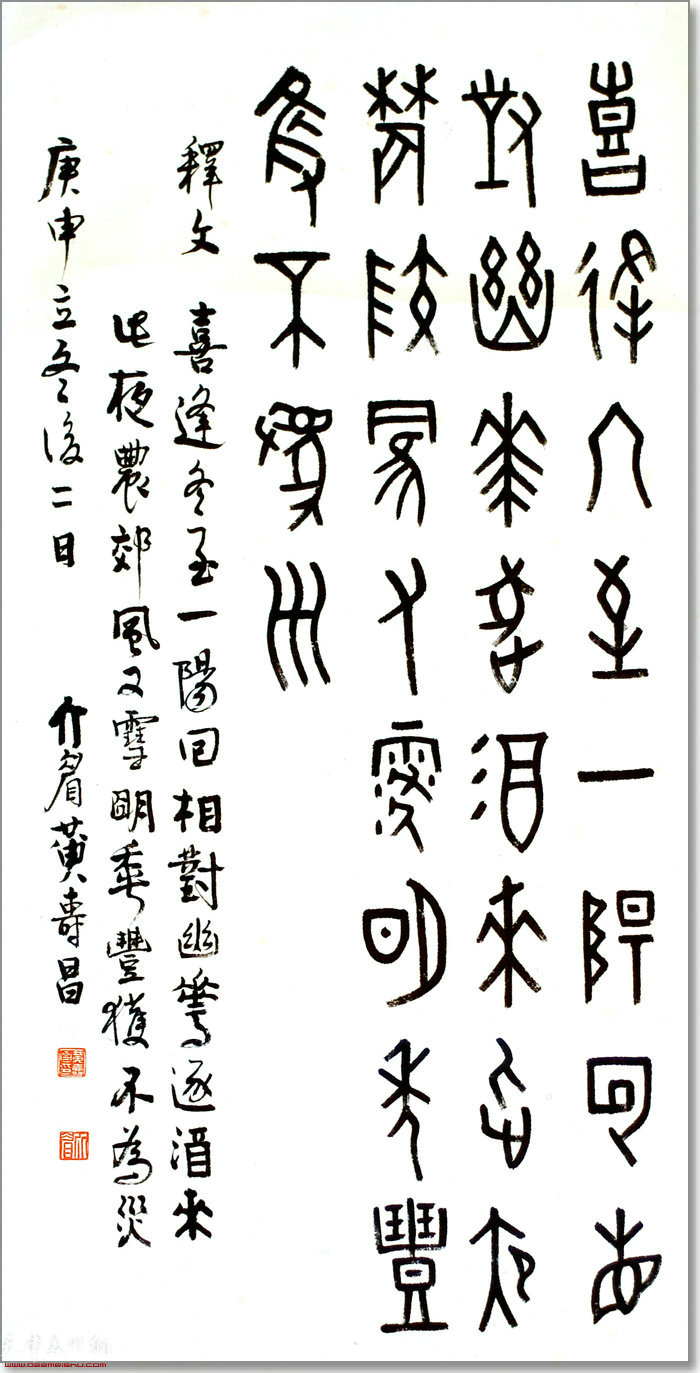 喜逢冬至一陽回相
對幽華逐酒來此夜
農郊風又雪明年豐
獲不為災
釋文 喜逢冬至一陽回相對幽華逐酒來
此夜農郊風又雪明年豐獲不為災
庚申立冬後二日 介眉黃壽昌
天津美术网
www.022meishu.com